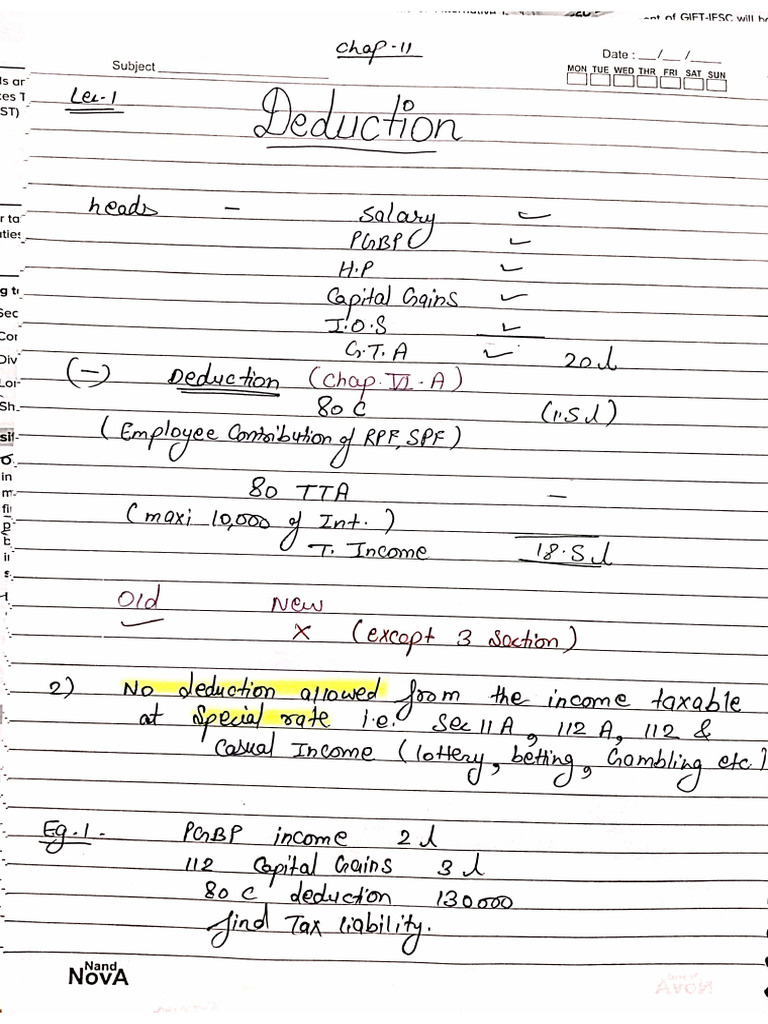 ent of GIFT-IFSC will be
Chap-11
Subject
Date : __/__/____
MON TUE WED THR FRI SAT SUN
Lec-1
Deduction
heads - Salary ✓
PGBP ✓
H.P ✓
Capital Gains ✓
I.O.S ✓
G.T.A ✓ 20 l
(-) Deduction (Chap. VI-A)
80 C (1.5 l)
(Employee Contribution of RPF, SPF)
80 TTA —
(maxi 10,000 of Int.)
T. Income 18.5 l
Old New
✓ × (except 3 Section)
2) No deduction allowed from the income taxable
at Special rate i.e. Sec 11A, 112A, 112 &
Casual Income (lottery, betting, Gambling etc)
Eg.1- PGBP income 2 l
112 Capital Gains 3 l
80 C deduction 130000
find Tax liability.
Nand
NovA